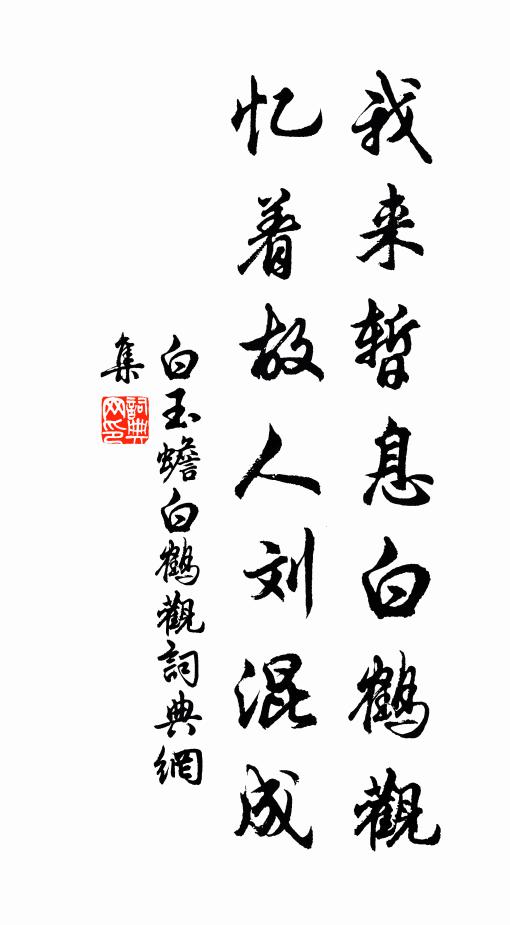 我来暂息白鹤觀
忆着故人刘混成
白玉蟾白鶴觀詞典網
集
詞典网印